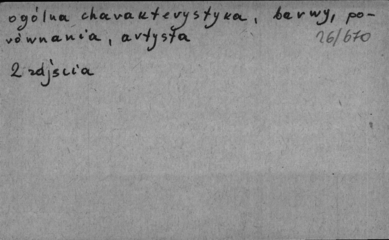 ogólna charakterystyka, barwy, po-
równania, artysta
26/670
2 zdjścia